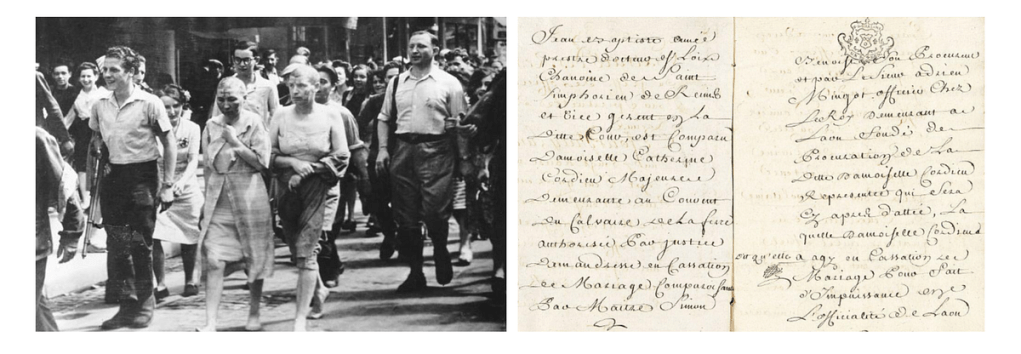 Jean Baptiste
prestre Docteur es Loix
Chanoine de Saint
Simphorien de Reims
et Vice gerent en la
ditte Cour, est Comparu
Damoiselle Catherine
Cordieu Majeure
demeurante au Couvent
du Calvaire de la fere
authorisée Par Justice
demanderesse en Cassation
de Mariage Comparante
Par Maitre Simon
son Procureur
et par Le Sieur adrien
Mingot officier Chez
Le Roy demeurant a
Laon fondé de
Procuration de La
ditte Damoiselle Cordieu
Representée qui Sera
Cy aprés d'attée, La
quelle Damoiselle Cordieu
a agy en Cassation de
Mariage Pour fait
d'Impuissance en
L'officialité de Laon